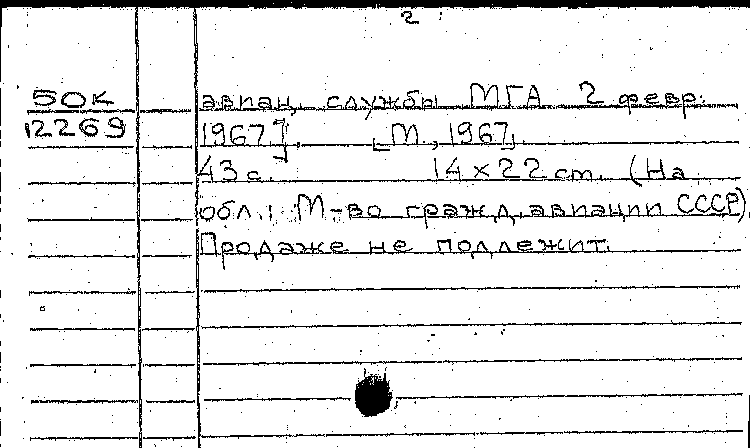 2
50К
12269
авиац. службы МГА 2 февр.
1967]. [М., 1967].
43 с. 14×22 cm. (На
обл.: М-во гражд. авиации СССР).
Продаже не подлежит.